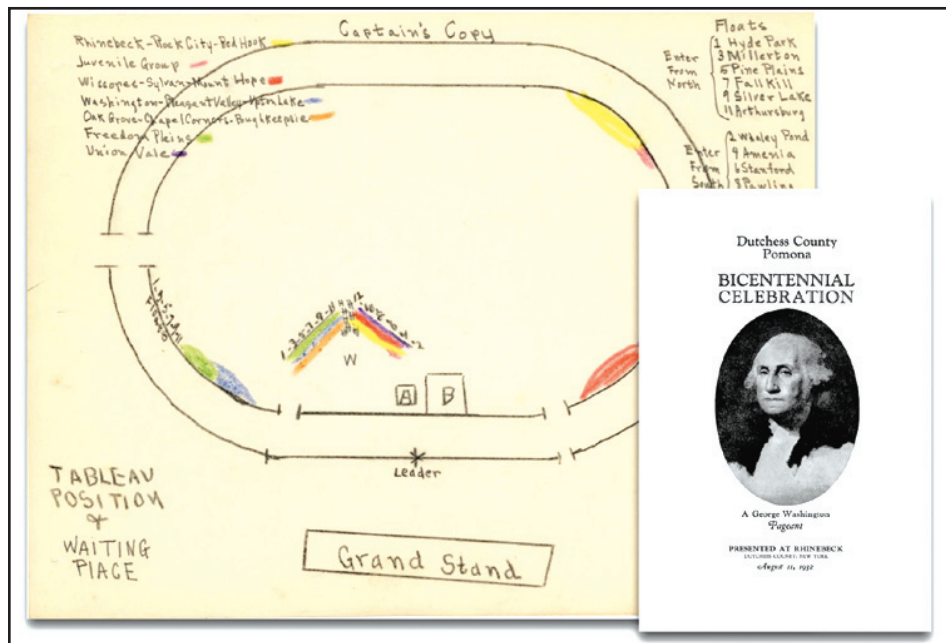 Captain's Copy
Rhinebeck-Rock City-Red Hook
Juvenile Group
Wiccopee-Sylvan-Mount Hope
Washington-Pleasant Valley-Upton Lake
Oak Grove-Chapel Corners-Poughkeepsie
Freedom Plains
Union Vale
Floats
Enter From North
1 Hyde Park
3 Millerton
5 Pine Plains
7 Fall Kill
9 Silver Lake
11 Arthursburg
Enter From South
2 Whaley Pond
4 Amenia
6 Stanford
8 Pawling
W
A
B
Leader
TABLEAU
POSITION
&
WAITING
PLACE
Grand Stand
Dutchess County
Pomona
BICENTENNIAL
CELEBRATION
A George Washington
Pageant
PRESENTED AT RHINEBECK
DUTCHESS COUNTY, NEW YORK
August 11, 1932